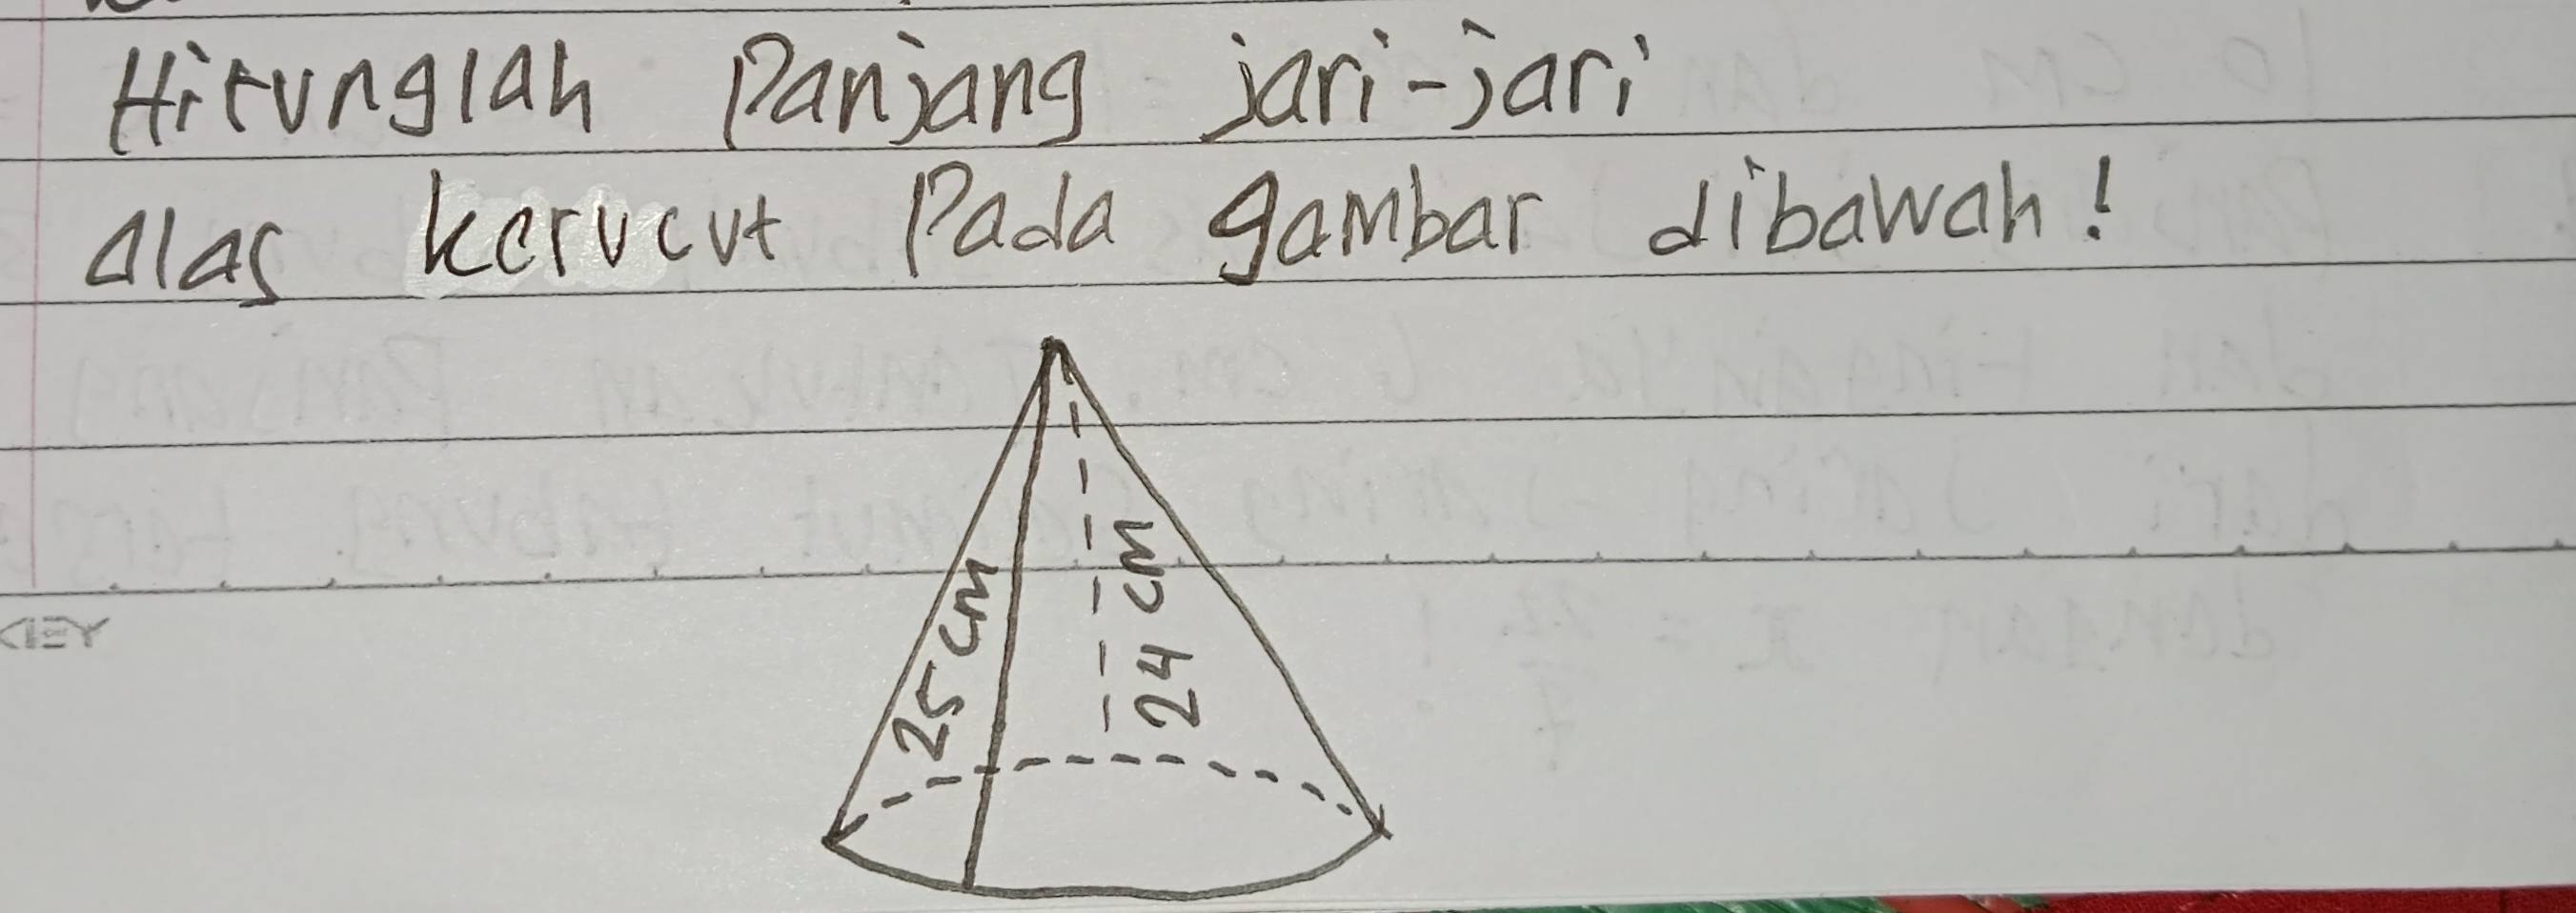 Hitunglah Panjang jari-jari
alas kerucut Pada gambar dibawah!
25 cm
24 cm